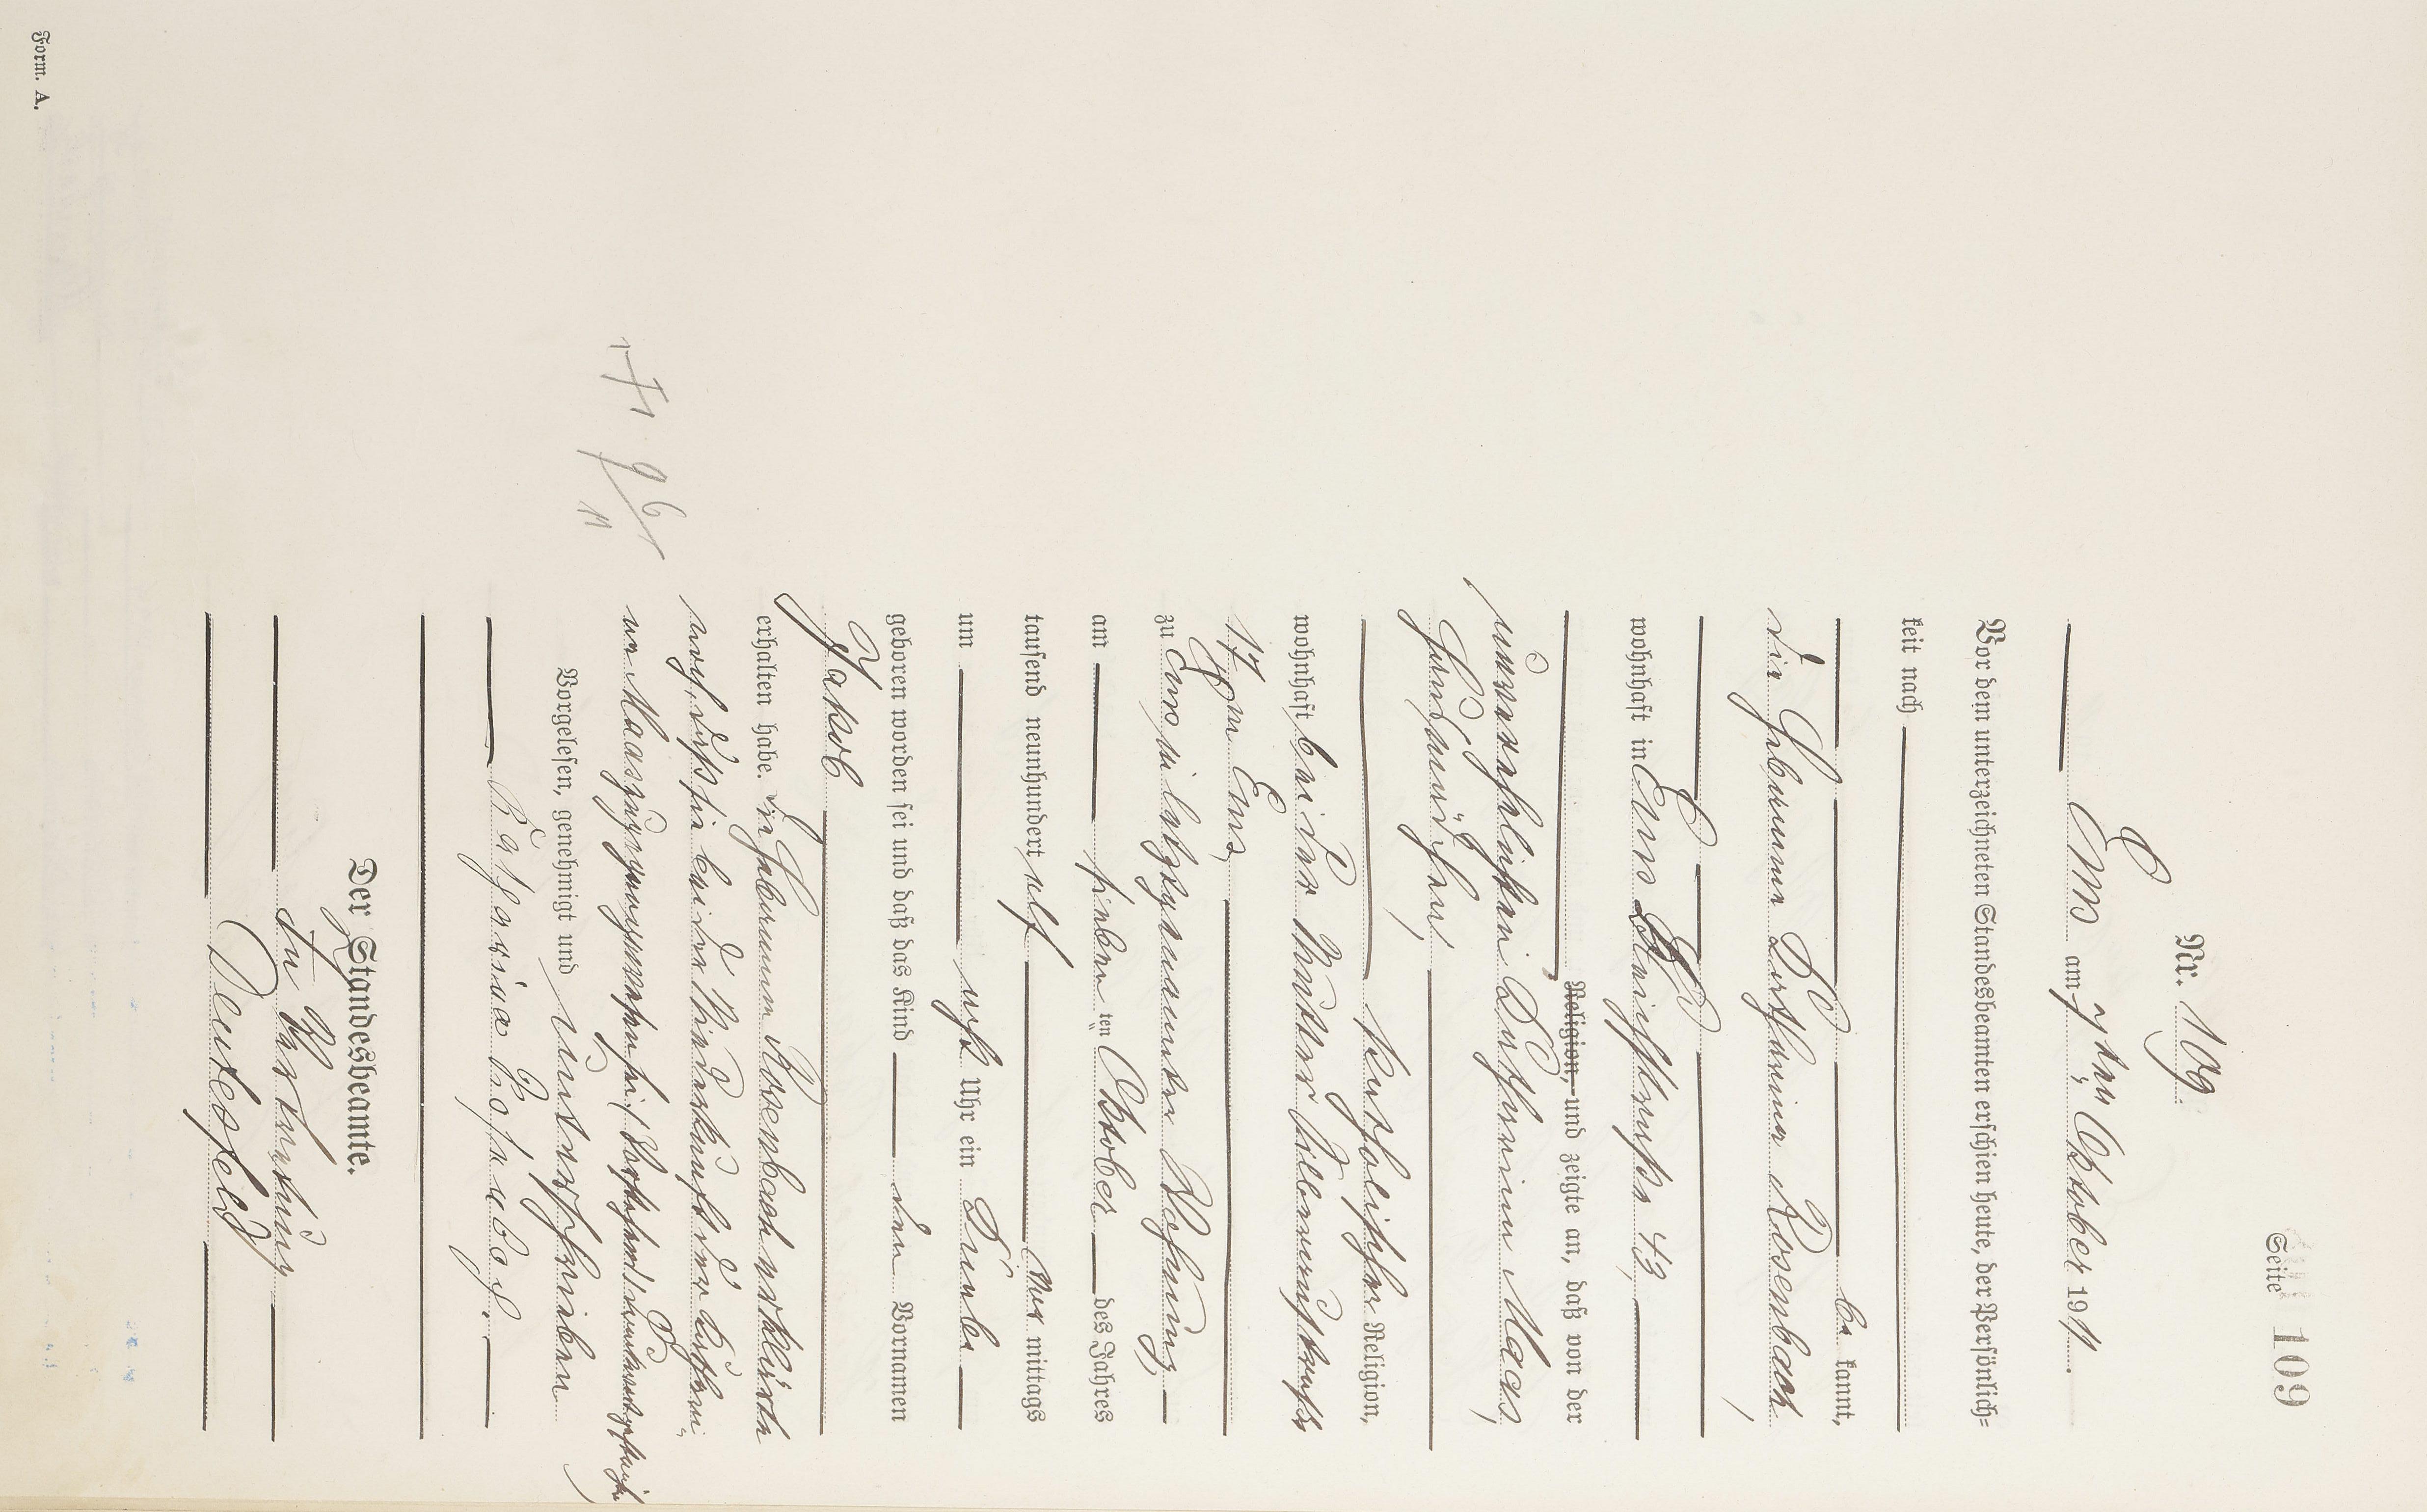 Seite 109
Nr. 109.
Ems am 7ten Oktober 1911.
Vor dem unterzeichneten Standesbeamten erschien heute, der Persönlich-
keit nach
be kannt,
die Hebamme Katharina Rosenbach,
wohnhaft in Ems 43,
Religion, und zeigte an, daß von der
unverehelichten Katharina Maas,
katholischer Religion,
wohnhaft bei der Mutter
17 zu Ems,
zu Ems in letztgenannter Wohnung,
am siebenten Oktober des Jahres
tausend neunhundert elf Vor mittags
um acht Uhr ein Knabe
geboren worden sei und daß das Kind den Vornamen
Jakob
erhalten habe. Die Hebamme Rosenbach erklärte
noch, daß sie bei der Niederkunft der Kathari„
na Maas zugegen gewesen sei.
Vorgelesen, genehmigt und unterschrieben
Katharina Rosenbach.
Der Standesbeamte.
In Vertretung
Deutesfeld
Form. A.